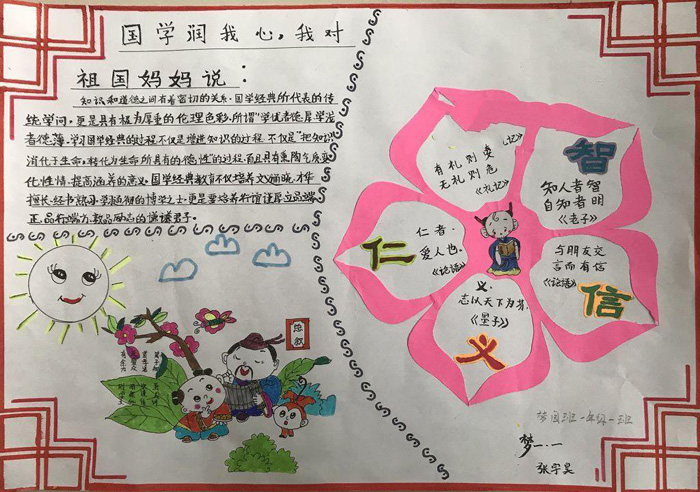 国学润我心,我对
祖国妈妈说：
知识和道德之间有着密切的关系。国学经典所代表的传
统学问，更是具有极为厚重的伦理色彩，所谓"学优者德厚学浅
者德薄。学习国学经典的过程不仅是增进知识的过程，不仅是"把知识
消化于生命，转化为生命所具有的德性"的过程，而且具有熏陶气质、变
化性情、提高涵养的意义。国学经典教育不仅培养文采
正品行端方、
礼记》
有礼则安
无礼则危
《礼记》
智
知人者智
自知者明
《老子》
仁
仁者.
爱人也.
《论语》
与朋友交
言而有信
《论语》
信
义.
志以天下为芬.
《墨子》
义
梦园班一年级一班
梦一.一
张宇昊